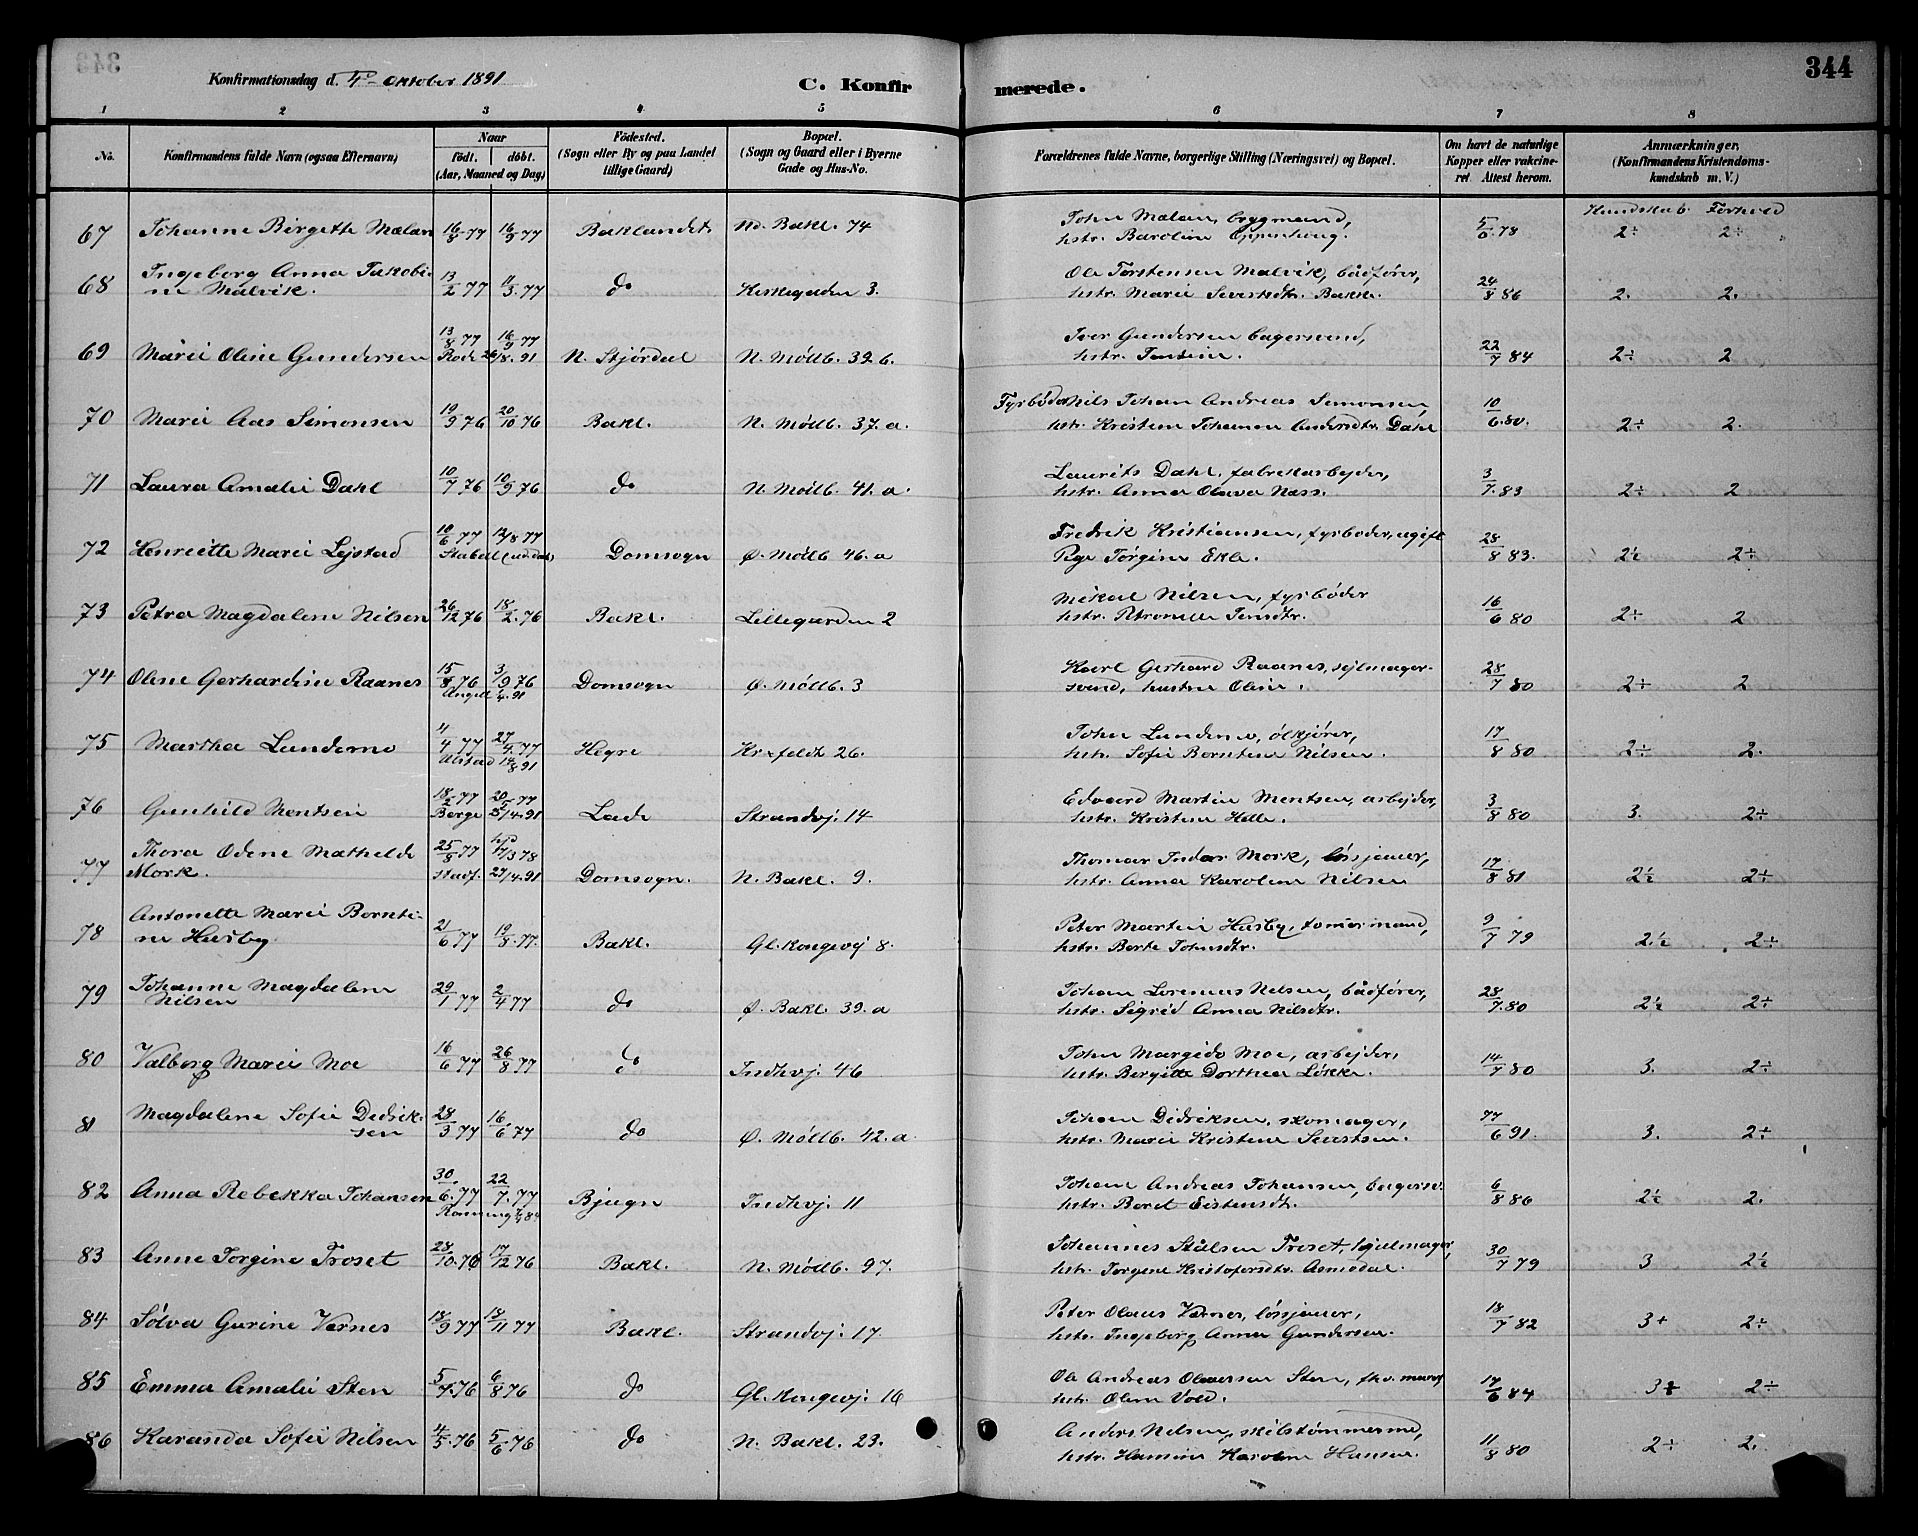 344
Konfirmationsdag d. 4de Oktober 1891
C. Konfirmerede.
1 2 3 4 5 6 7 8
No.
Konfirmandens fulde Navn (ogsaa Efternavn)
Naar
födt. döbt.
(Aar, Maaned og Dag)
Födested.
(Sogn eller By og paa Landet
tillige Gaard)
Bopæl.
(Sogn og Gaard eller i Byerne
Gade og Hus-No.
Forældrenes fulde Navne, borgerlige Stilling (Næringsvei) og Bopæl.
Om havt de naturlige
Kopper eller vakcine-
ret Attest herom.
Anmærkninger,
(Konfirmandens Kristendoms-
kundskab m. V.)
Kundskab Forhold
67 Johanne Birgette Mælan 16/8 77 16/9 77 Baklandet Nd. Bakl. 74 John Mælan, bygmand, 5/6 78 2÷ 2÷
hstr. Baroline Oppenhaug.
68 Ingeborg Anna Jakobi-
ne Malvik. 13/2 77 11/3 77 do Kirkegaden 3. Ole Torstensen Malvik, bådfører, 24/8 86 2. 2.
hstr. Marie Sivertsdtr. Bakke.
69 Marie Oline Gundersen 13/8 77 16/9 77 N. Stjørdal N. Møllb. 39 b. Iver Gundersen bagersvend, 22/7 84 2÷ 2
Rode 26/8 91 hstr.
70 Marie Aas Simonsen 19/9 76 20/10 76 Bakl. N. Møllb. 37. a. Fyrbøder Nils Johan Andreas Simonsen, 10/6 80. 2÷ 2.
hstr. Kristine Johanna Andersdtr. Dahl
71 Laura Amalie Dahl 10/7 76 10/9 76 do N. Møllb. 41. a. Laurits Dahl, fabrikarbejder, 3/7 83 2÷ 2
hstr. Anna Olava Næss.
72 Henriette Marie Lejstad 10/6 77 12/8 77 Domsogn Ø. Møllb. 46. a Fredrik Kristiansen, fyrbøder, ugift 28/8 83. 2½ 2÷
Pige Jørgine Ekle.
73 Petra Magdalene Nilsen 26/12 76 18/2 76 Bakl. Lillegården 2 Mikal Nilsen, fyrbøder 16/6 80 2÷ 2
hstr. Petronelle Jensdtr.
74 Oline Gerhardine Raanes 15/8 76 3/9 76 Domsogn Ø. Møllb. 3 Karl Gerhard Raanes, sejlmager- 28/7 80 2÷ 2
Angell 6/4 91 svend, hustru Oline.
75 Martha Lundemo 11/4 77 27/4 77 Hegre Kr. feldt 26. John Lundemo, ølkjører, 17/8 80 2÷ 2.
Ulstad 14/8 91 hstr. Sofie Berntine Nilsen.
76 Gunhild Mentsen 18/2 77 20/5 77 Lade Strandvj. 14 Edvard Martin Mentsen, arbejder, 3/8 80 3. 2÷
Berge 25/4 91 hstr. Kristine Helle.
77 Thora Odine Mathilde
Mork. 25/8 77 17/3 78 Domsogn. N. Bakl. 9. Thomas Inder Mork, løssjauer, 17/8 81 2½ 2÷
Stadf. 27/4 91 hstr. Anna Karoline Nilsen
78 Antonette Marie Bernti-
ne Husby 21/6 77 19/8 77. Bakl. Gl. Kongevj 8. Peter Martin Husby, tømermand, 9/7 79 2½ 2÷
hstr. Berte Johnsdtr.
79 Johanne Magdalene
Nilsen 29/1 77 2/4 77 do Ø. Bakl. 39. a Johan Lorenus Nilsen, bådfører, 28/7 80 2½ 2÷
hstr. Sigrid Anna Nilsdtr.
80 Valborg Marie Moe 16/6 77 26/8 77 do Indhvj. 46 John Margido Moe, arbejder, 14/7 80 3. 2÷
hstr. Bergitte Dorthea Løkke.
81 Magdalene Sofie Dedrik-
sen 28/3 77 16/6 77 do Ø. Møllb. 42. a. Johan Didriksen, skomager, 17/6 91. 3. 2÷
hstr. Marie Kristine Sivertsen.
82 Anna Rebekka Johansen 30/6 77 22/7 77 Bjugn Indhvj. 11 Johan Andreas Johansen, bagersv. 6/8 86 2½ 2.
hstr. Beret Eistensdt.
83 Anne Jorgine Troset 28/10 76 17/12 76 Bakl. N. Møllb. 97. Johannes Stålsen Troset, hjulmager, 30/7 79 3 2½
hstr. Jørgene Kristofersdtr. Asmodal.
84 Sølva Gurine Værnes 18/9 77 18/11 77 Bakl. Strandvj. 17. Peter Olaus Værnes, løssjauer, 18/7 82 3+ 2÷
hstr. Ingeborg Anna Gundersen.
85 Emma Amalie Sten 5/7 76 6/8 76 do Gl. Kongevj. 16 Ole Andreas Olaussen Sten, 17/6 84 3+ 2÷
hstr. Oline Vold.
86 Karanda Sofie Nilsen 4/5 76 5/6 76 do N. Bakl. 23. Anders Nilsen, skibstømmermd, 11/8 80 2÷ 2.
hstr. Hansine Karoline Hansen.